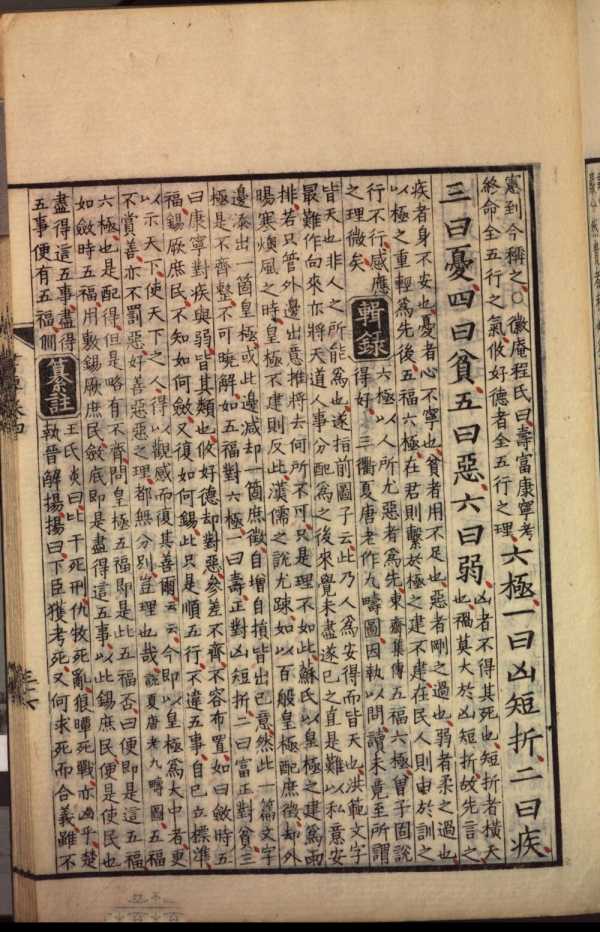 憲到今稱之○徽庵程氏曰壽富康寧考
終命全五行之氣攸好德者全五行之理
六極一曰凶短折二曰疾
凶者不得其死也短折者橫夭
也禍莫大於凶短折故先言之
三曰憂四曰貧五曰惡六曰弱
疾者身不安也憂者心不寧也貧者用不足也惡者剛之過也弱者柔之過也
以極之重輕為先後五福六極在君則繫於極之建不建在民人則由於訓之
行不行感應
之理微矣
輯錄
六極以人所尤惡者為先東齋集傳五福六極曾子固說
得好三衢夏唐老作九疇圖因執以問讀未竟至所謂
皆天也非人之所能為也遂指前圖子云此乃人為安得而皆天也洪範文字
最難作向來亦將天道人事分配為之後來覺未盡遂已之直是難以私意安
排若只管外邊出意推將去何所不可只是理不如此蘇氏以皇極之建為雨
暘寒燠風之時皇極不建則反此漢儒之說尤踈如以百般皇極配庶徵却外
邊添出一箇皇極或此邊減却一箇庶徵自增自損皆出己意然此一篇文字
極是不齊整不可曉解如五福對六極一曰壽正對凶短折二曰富正對貧三
曰康寧對疾與弱皆其類也攸好德却對惡參差不齊不容布置如曰斂時五
福錫厥庶民不知如何斂又復如何錫此只是順五行不違五事自己立標準
以示天下使天下之人得以觀感而復其善爾云云今即以皇極為大中者更
不賞善亦不罰惡好善惡惡之理都無分別豈理也哉
說夏唐老九疇圖
五福
六極也是配得但是略有不齊問皇極五福即是此五福否曰便即是這五福
如斂時五福用敷錫厥庶民斂底即是盡得這五事以此錫庶民便是使民也
盡得這五事盡得
五事便有五福㒓
纂註
王氏炎曰比干死刑仇牧死亂狼瞫死戰亦凶乎楚
執晉解揚揚曰下臣獲考死又何求死而合義雖不